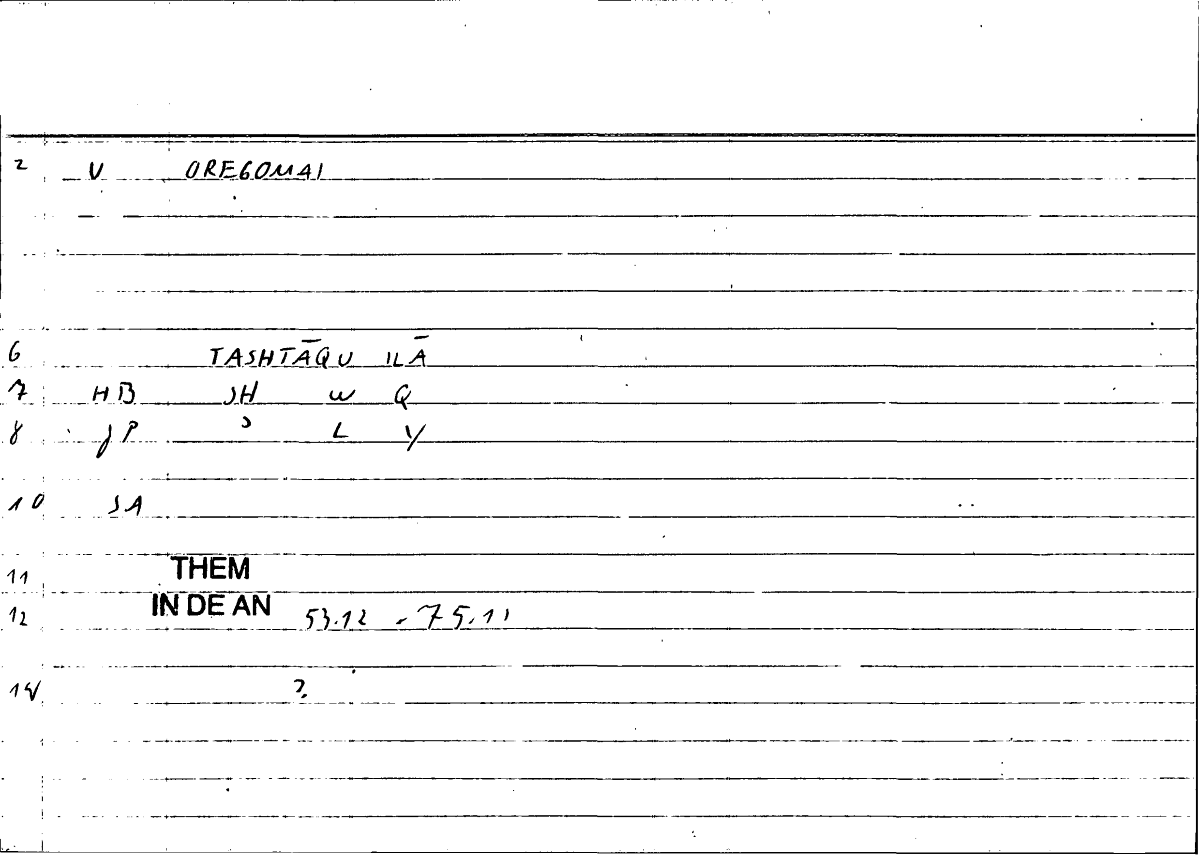 2 V OREGOMAI
6 TASHTĀQU ILĀ
7 HB SH W Q
8 JP ' L Y
10 SA
11 THEM
12 IN DE AN 53.12 - 75.11
14 ?